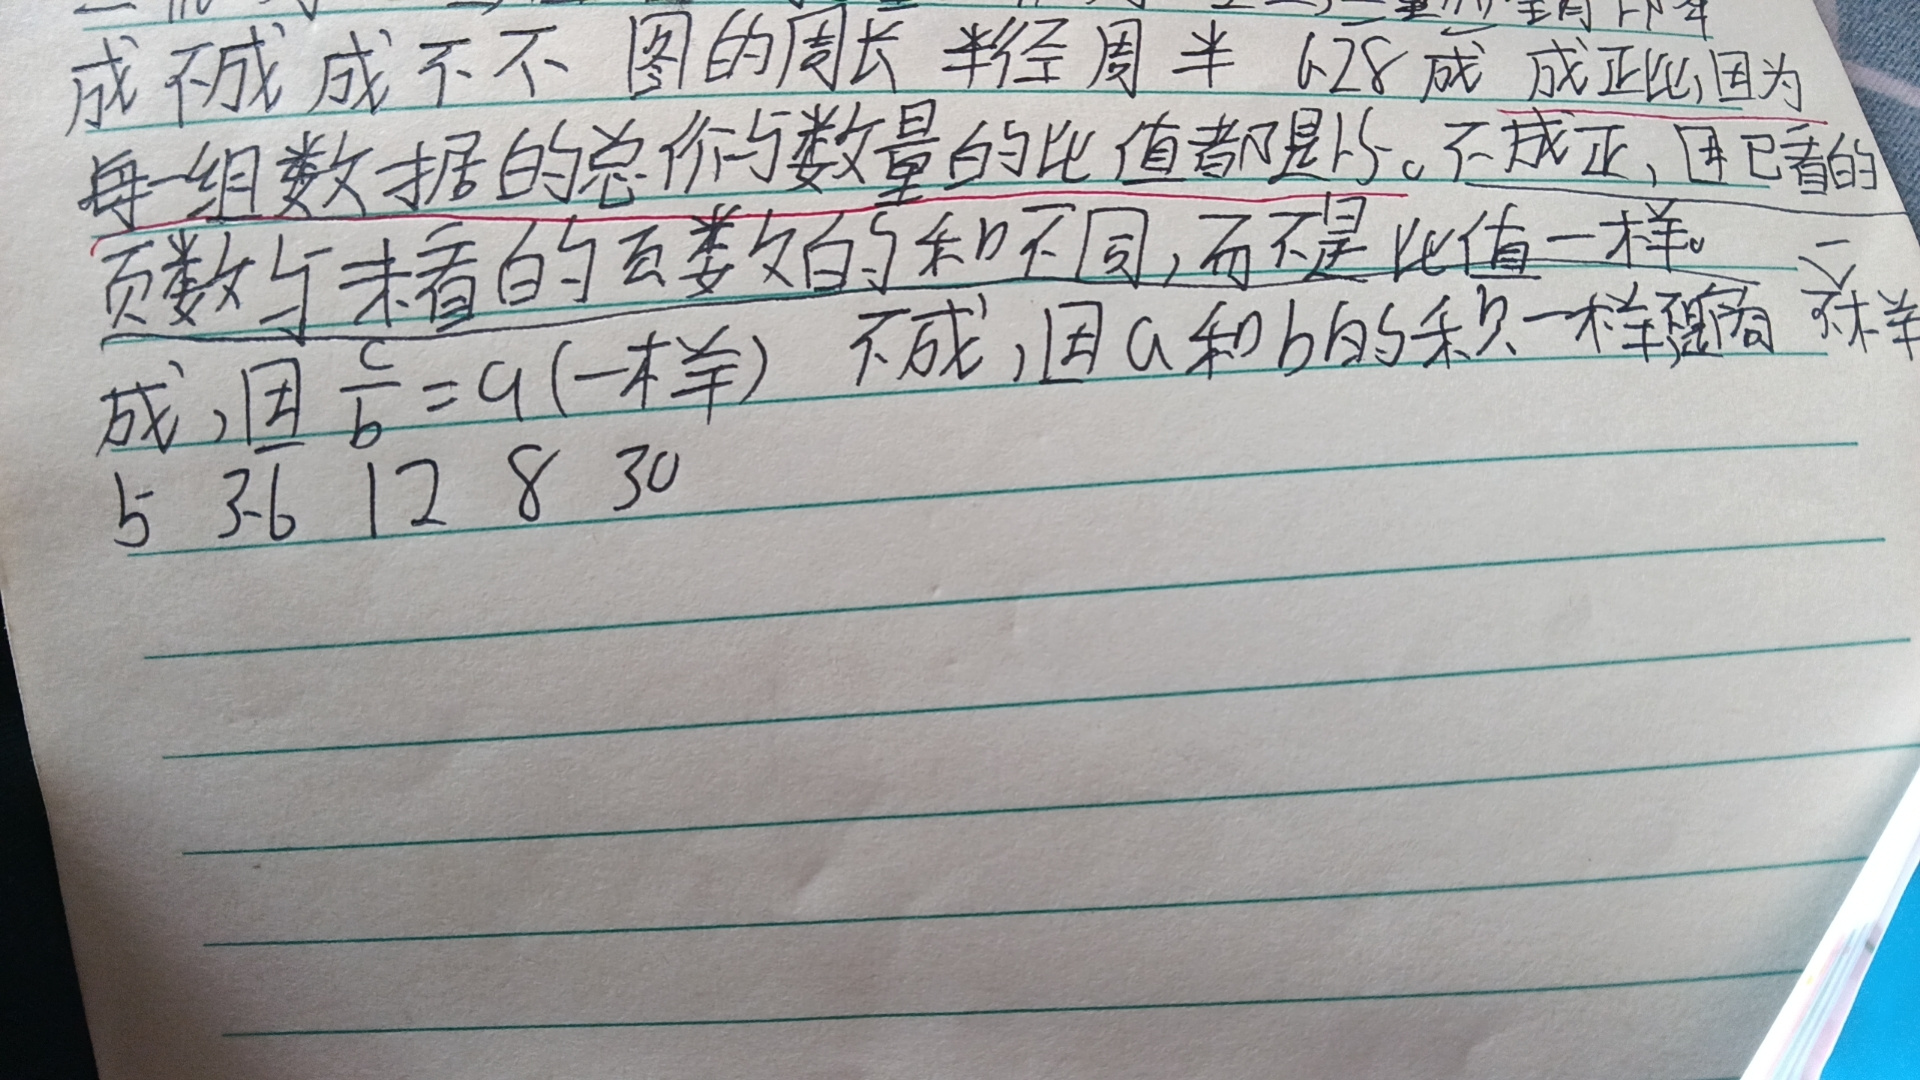 成 不成 成 不 不 图的周长 半径 周 半 6.28 成 成正比,因为
每一组数据的总价与数量的比值都是15。不成正,因已看的
页数与未看的页数的和不同,而不是比值一样。
成,因 c/b = a (一样) 不成,因a和b的积一样 不一样
5 3.6 12 8 30